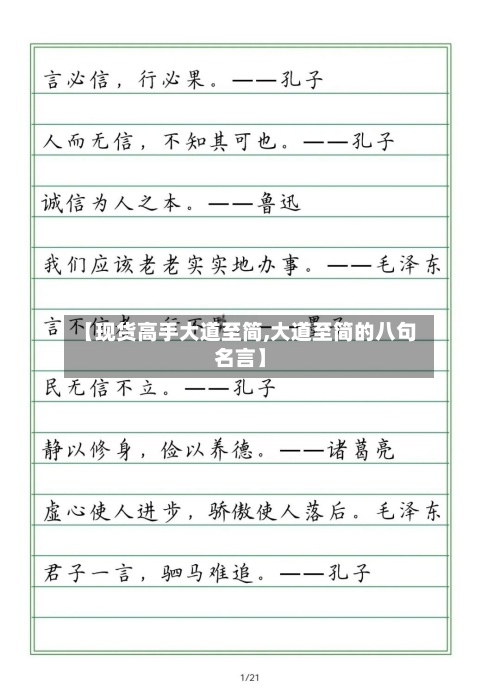 言必信，行必果。——孔子
人而无信，不知其可也。——孔子
诚信为人之本。——鲁迅
我们应该老老实实地办事。——毛泽东
言不信者，行不
【现货高手大道至简,大道至简的八句
名言】
民无信不立。——孔子
静以修身，俭以养德。——诸葛亮
虚心使人进步，骄傲使人落后。毛泽东
君子一言，驷马难追。——孔子
1/21